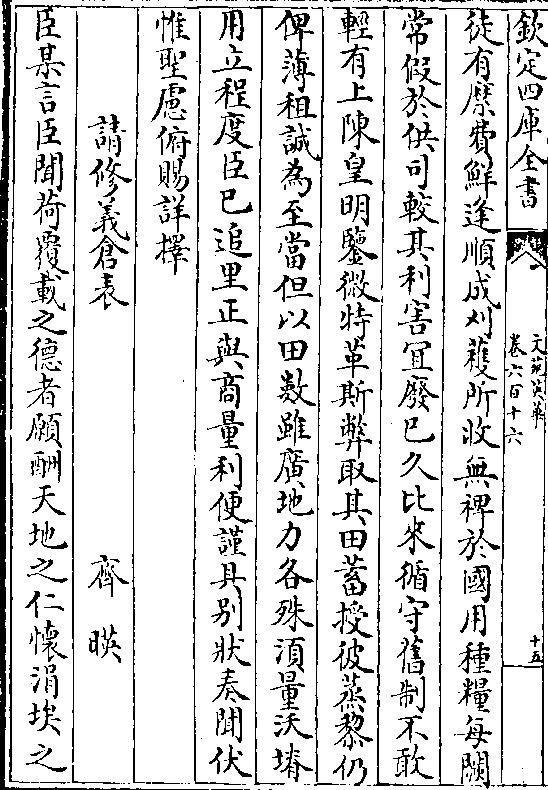 欽定四庫全書
文苑英華
卷六百十六
十五
徒有縻費鮮逢順成刈穫所收無裨於國用種糧每闕
常假於供司較其利害宜廢已久比來循守舊制不敢
輕有上陳皇明鑒微特革斯弊取其田蓄授彼蒸黎仍
俾薄租誠為至當但以田數雖廣地力各殊湏量沃塉
用立程度臣已追里正與商量利便謹具别狀奏聞伏
惟聖慮俯賜詳擇
請修義倉表
齊映
臣某言臣聞荷覆載之德者願酬天地之仁懷涓埃之